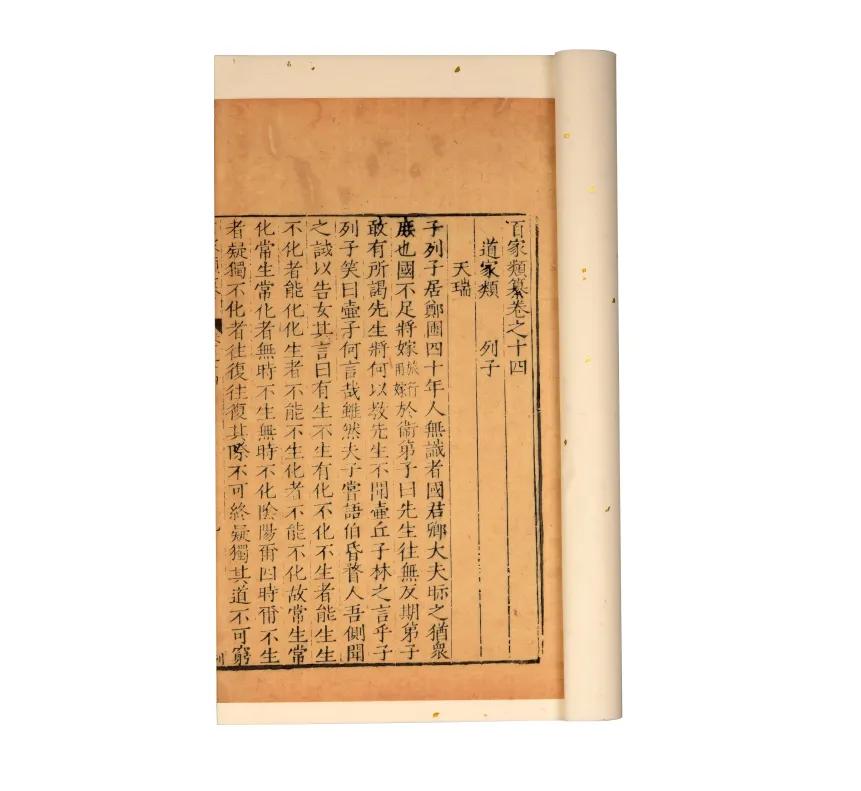 百家類纂卷之十四
道家類 列子
天瑞
子列子居鄭圃四十年人無識者國君卿大夫眎之猶衆
庶也國不足將嫁旅行曰嫁於衞第子曰先生往無反期第子
敢有所謁先生將何以敎先生不聞壷丘子林之言乎子
列子笑曰壷子何言哉雖然夫子嘗語伯昏瞀人吾側聞
之試以告女其言曰有生不生有化不化不生者能生生
不化者能化化生者不能不生化者不能不化故常生常
化常生常化者無時不生無時不化陰陽爾四時爾不生
者疑獨不化者往復往復其際不可終疑獨其道不可窮